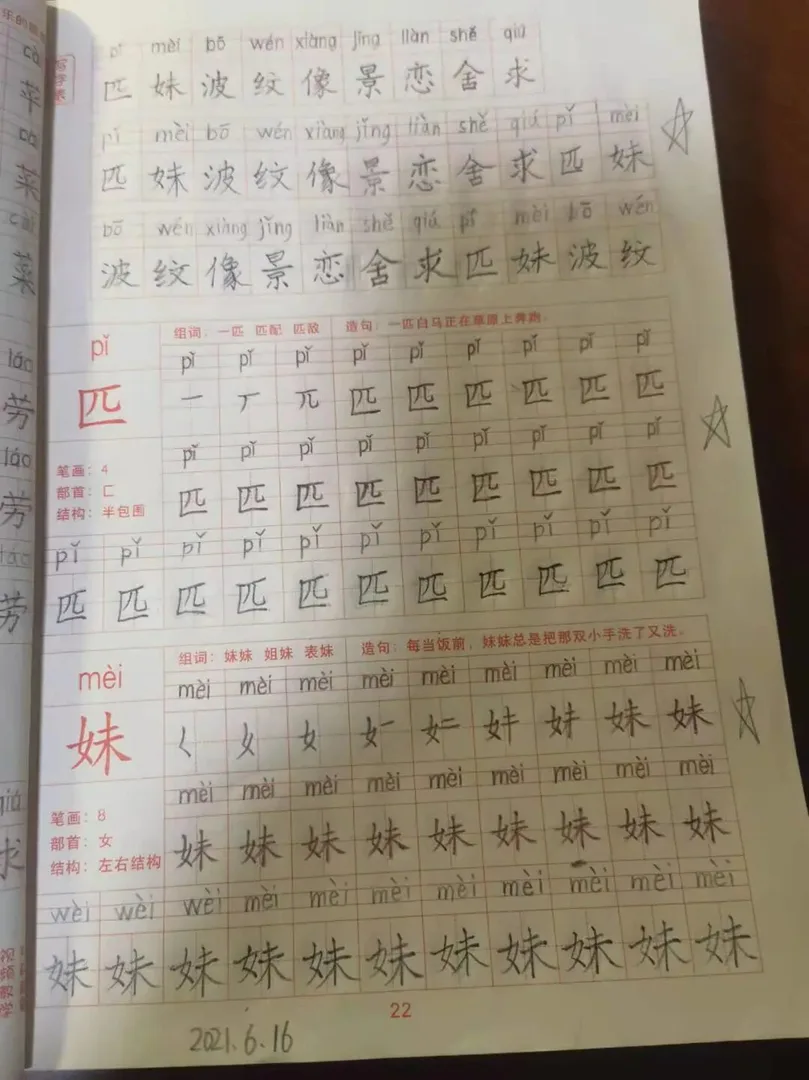 写字表
pǐ mèi bō wén xiàng jǐng liàn shě qiú
匹 妹 波 纹 像 景 恋 舍 求
pǐ mèi bō wén xiàng jǐng liàn shě qiú pǐ mèi
匹 妹 波 纹 像 景 恋 舍 求 匹 妹
bō wén xiàng jǐng liàn shě qiú pǐ mèi bō wén
波 纹 像 景 恋 舍 求 匹 妹 波 纹
组词：一匹 匹配 匹敌 造句：一匹白马正在草原上奔跑。
pǐ
pǐ pǐ pǐ pǐ pǐ pǐ pǐ pǐ pǐ
匹
一 丆 兀 匹 匹 匹 匹 匹 匹
pǐ pǐ pǐ pǐ pǐ pǐ pǐ pǐ pǐ
笔画：4
部首：匚
结构：半包围
匹 匹 匹 匹 匹 匹 匹 匹 匹
pǐ pǐ pǐ pǐ pǐ pǐ pǐ pǐ pǐ pǐ pǐ
匹 匹 匹 匹 匹 匹 匹 匹 匹 匹 匹
组词：妹妹 姐妹 表妹 造句：每当饭前，妹妹总是把那双小手洗了又洗。
mèi
mèi mèi mèi mèi mèi mèi mèi mèi mèi
妹
𡿨 女 女 女一 女二 妹 妹 妹 妹
mèi mèi mèi mèi mèi mèi mèi mèi mèi
笔画：8
部首：女
结构：左右结构
妹 妹 妹 妹 妹 妹 妹 妹 妹
wèi wèi wèi mèi mèi mèi mèi mèi mèi mèi mèi
妹 妹 妹 妹 妹 妹 妹 妹 妹 妹 妹
22
2021.6.16
菜
cài
菜
láo
劳
láo
劳
láo
劳
qiú
求
视频教学